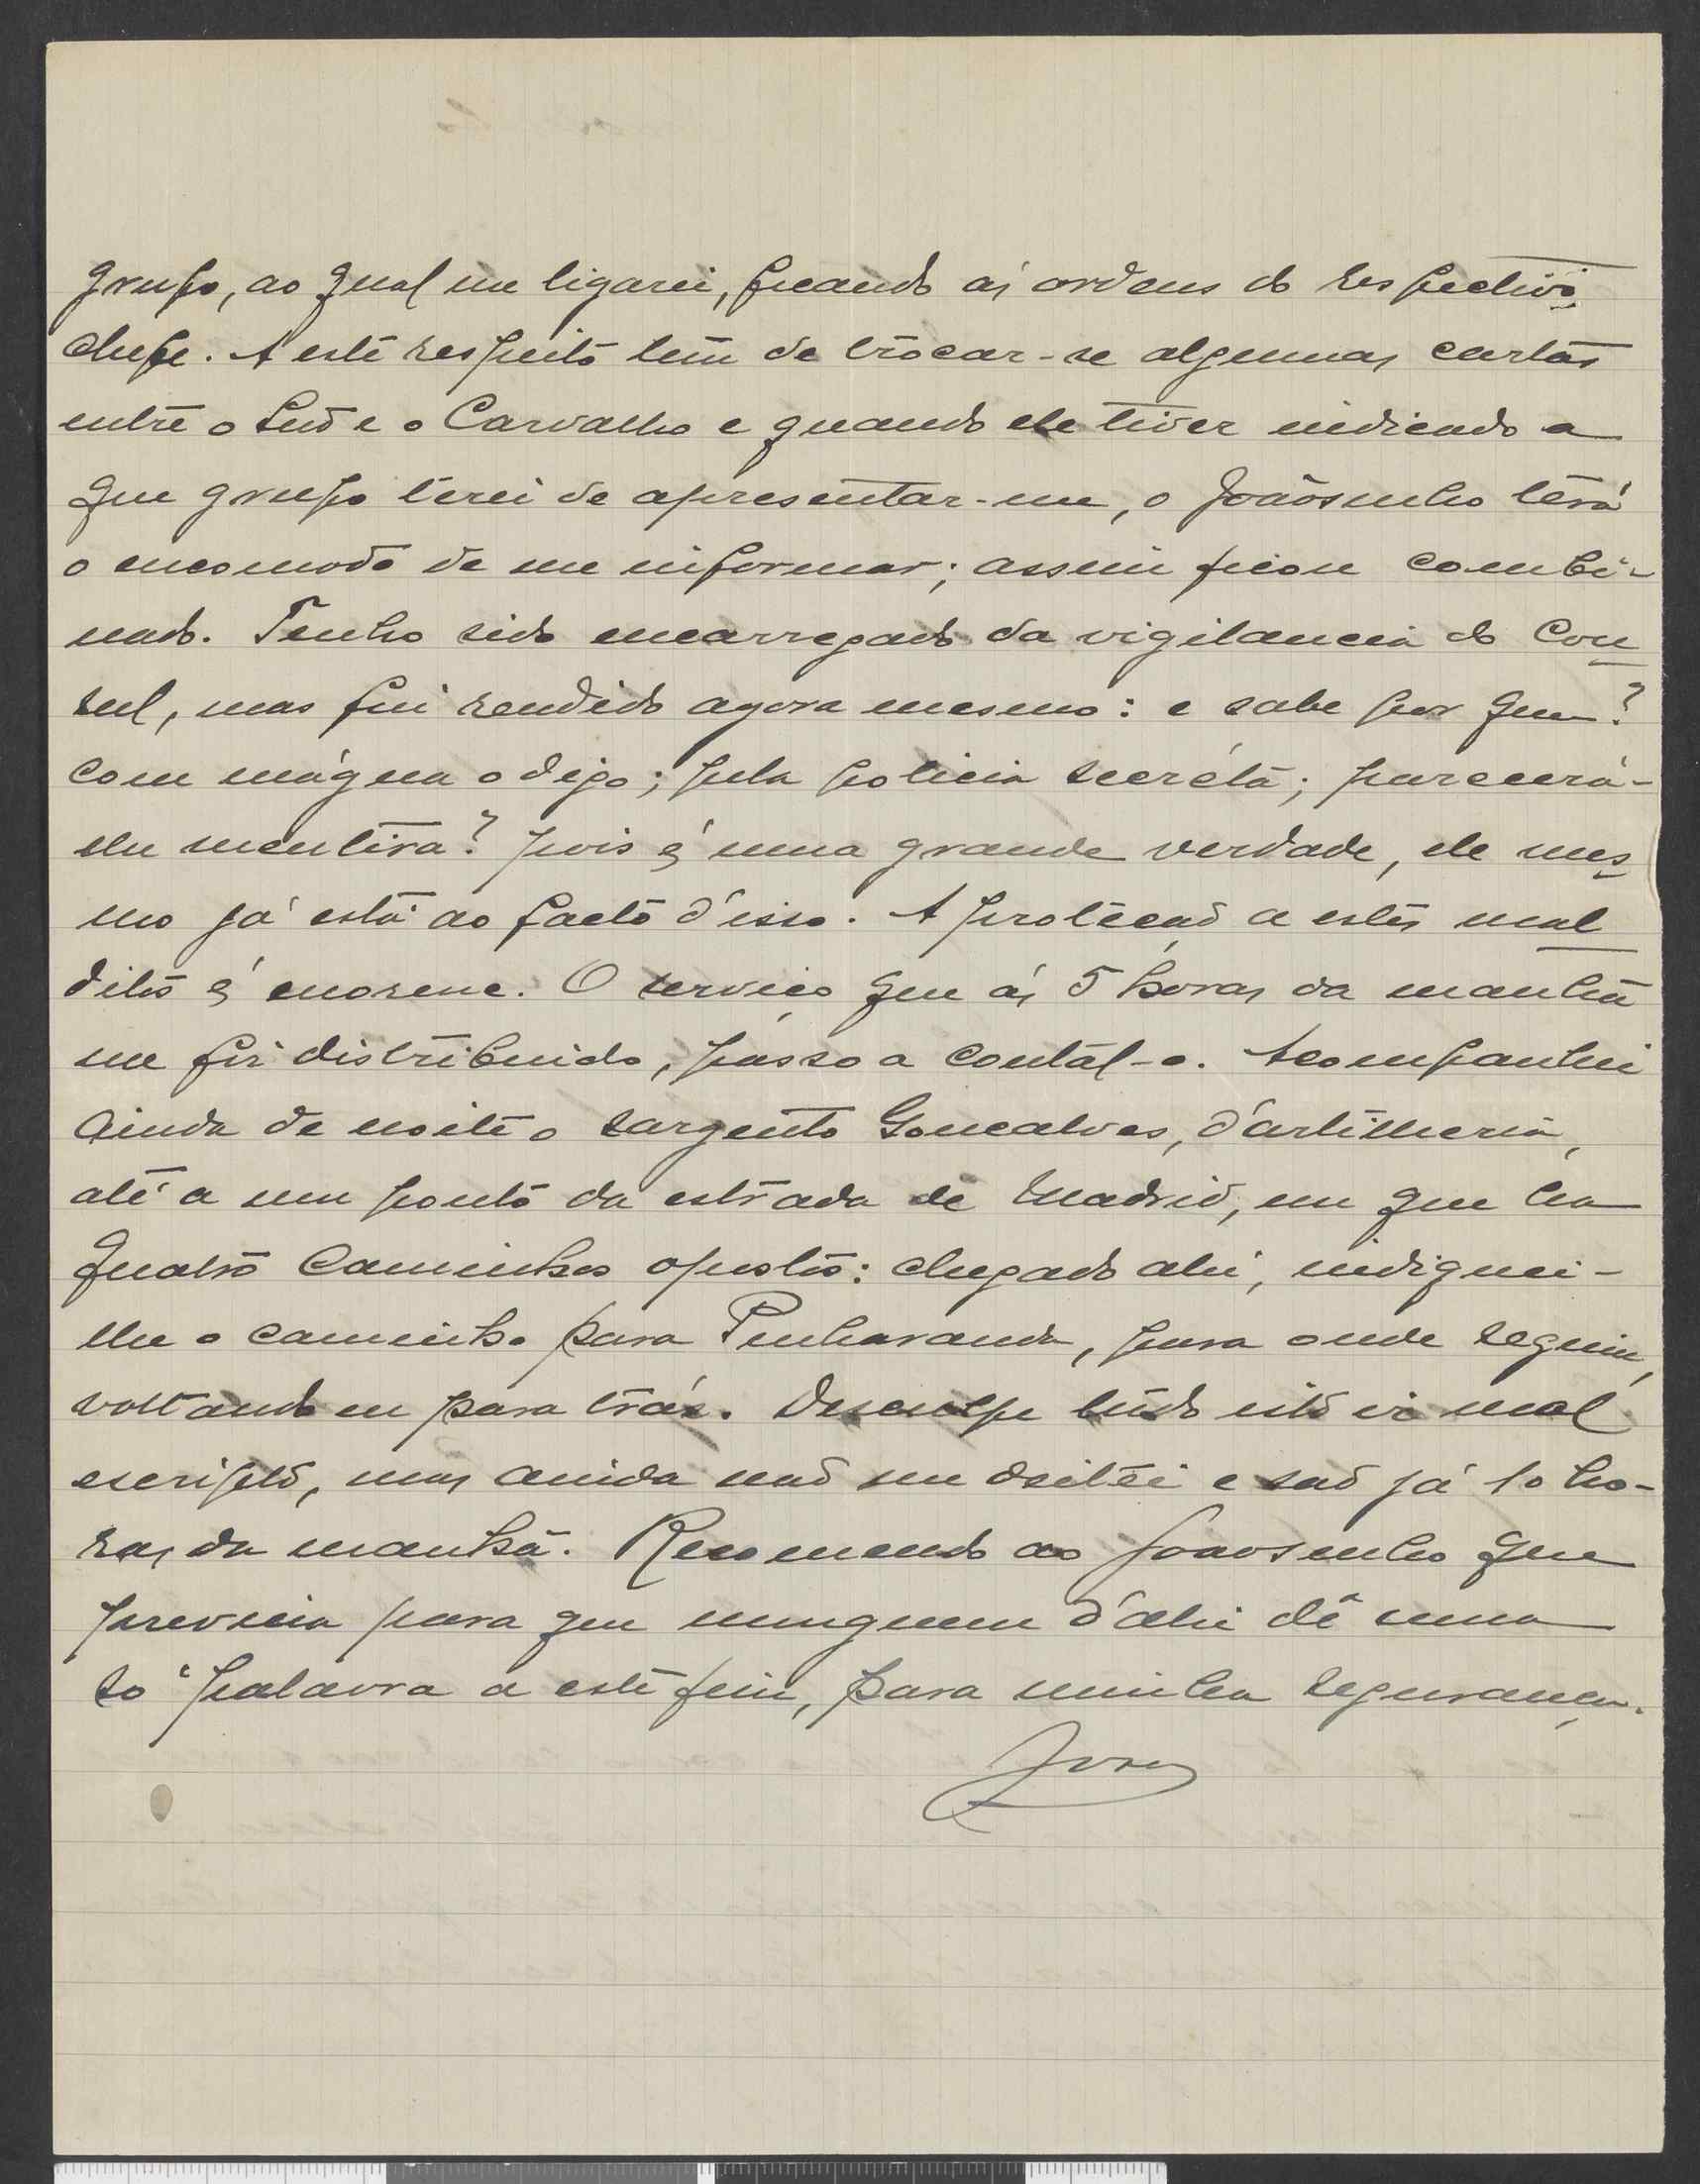 grupo, ao qual me ligarei, ficando ás ordens do respectivo
chefe. A este respeito tem de trocar-se algumas cartas
entre o Luð e o Carvalho e quando ele tiver indicado a
que grupo terei de apresentar-me, o Joãosinho terá
o encomodo de me informar; assim ficou combi-
nado. Tenho sido encarregado da vigilancia do Con
sul, mas fui rendido agora mesmo: e sabe por quem?
Com mágua o digo; pela policia secréta; parecerá-
lhe mentira? pois é uma grande verdade, ele mes
mo já está ao facto d'isso. A proteção a estes mal
ditos é enorme. O serviço que ás 5 horas da manhã
me foi distribuido, passo a contal-o. Acompanhei
ainda de noite o sargento Goncalves, d'artilheria,
até a um ponto da estrada de Madrid, em que ha
quatro caminhos opostos: chegado ahi, indiquei-
lhe o caminho para Penharanda, para onde seguiu,
voltando eu para tráz. Desculpe tudo isto ir mal
escripto, mas ainda não me deitei e são já 10 ho-
ras da manhã. Recomendo ao Joaosinho que
previna para que ninguem d'ahi dê uma
só palavra a este fim, para minha segurança.